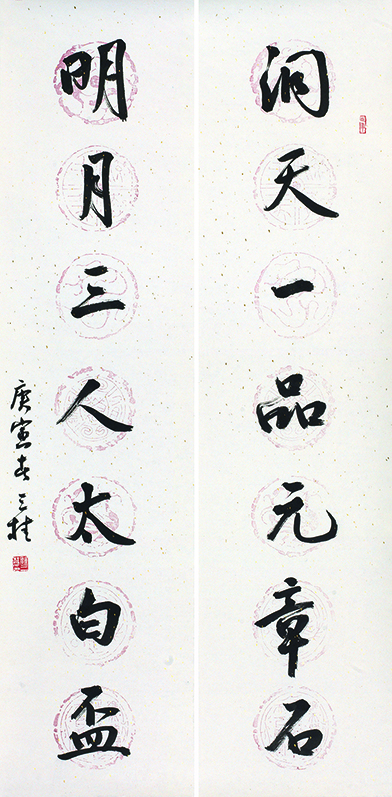 洞天一品元章石
明月三人太白盃
庚寅春三柱